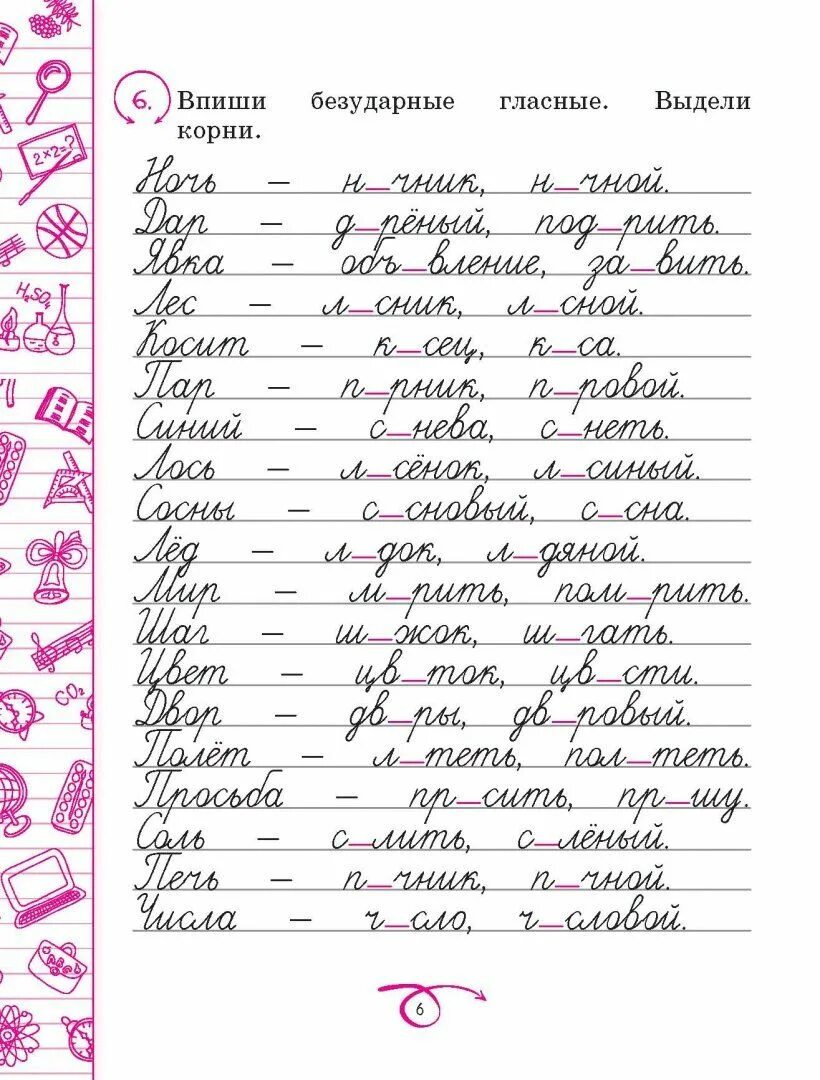 6. Впиши безударные гласные. Выдели
корни.
Ночь – н_чник, н_чной.
Дар – д_рёный, под_рить.
Явка – объ_вление, за_вить.
Лес – л_сник, л_сной.
Косит – к_сец, к_са.
Пар – п_рник, п_ровой.
Синий – с_нева, с_неть.
Лось – л_сёнок, л_синый.
Сосны – с_сновый, с_сна.
Лёд – л_док, л_дяной.
Мир – м_рить, пом_рить.
Шаг – ш_жок, ш_гать.
Цвет – цв_ток, цв_сти.
Двор – дв_ры, дв_ровый.
Полёт – л_теть, пол_теть.
Просьба – пр_сить, пр_шу.
Соль – с_лить, с_лёный.
Печь – п_чник, п_чной.
Числа – ч_сло, ч_словой.
6
2×2=?
H₂SO₄
CO₂